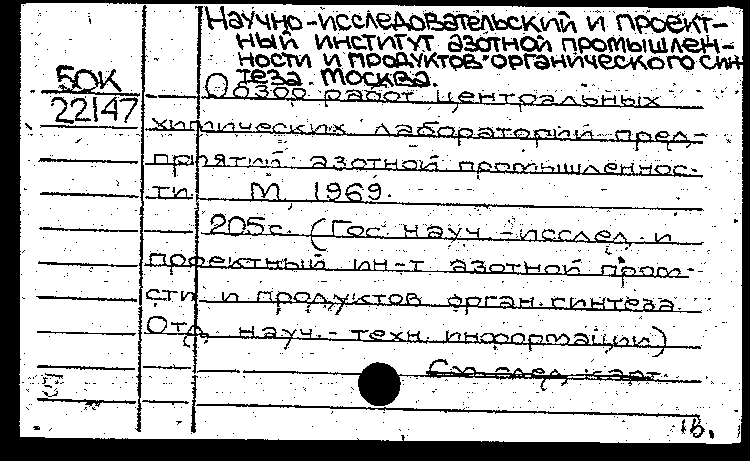 Научно-исследовательский и проект-
ный институт азотной промышлен-
ности и продуктов органического син-
теза. Москва.
БОК
22147
Обзор работ центральных
химических лабораторий пред-
приятий азотной промышленнос-
ти. М., 1969.
205с. (Гос. науч.-исслед. и
проектный ин-т азотной пром-
сти и продуктов орган. синтеза.
Отд. науч.-техн. информации)
См. след. карт.
1в.